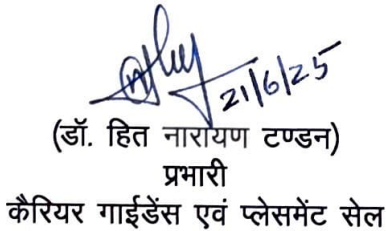 21/6/25
(डॉ. हित नारायण टण्डन)
प्रभारी
कैरियर गाईडेंस एवं प्लेसमेंट सेल